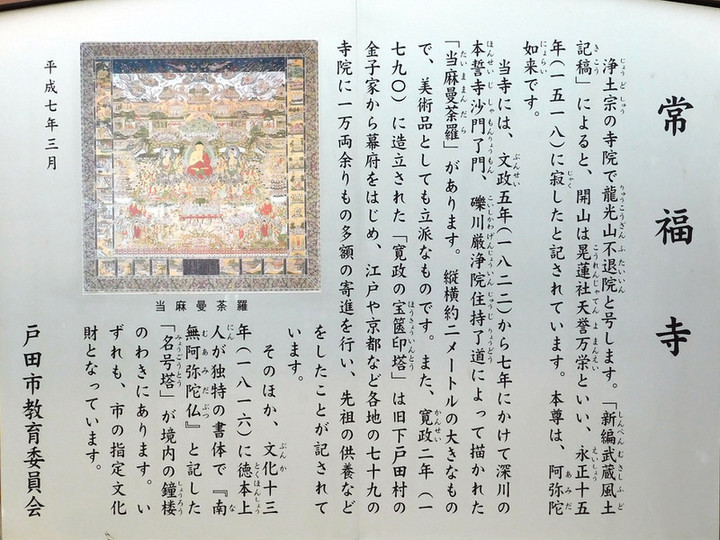 常福寺
浄土宗の寺院で龍光山不退院と号します。「新編武蔵風土
記稿」によると、開山は晃蓮社天誉万栄といい、永正十五
年(一五一八)に寂したと記されています。本尊は、阿弥陀
如来です。
当寺には、文政五年(一八二二)から七年にかけて深川の
本誓寺沙門了門、礫川厳浄院住持了道によって描かれた
「当麻曼荼羅」があります。縦横約二メートルの大きなもの
で、美術品としても立派なものです。また、寛政二年(一
七九〇)に造立された「寛政の宝篋印塔」は旧下戸田村の
金子家から幕府をはじめ、江戸や京都など各地の七十九の
寺院に一万両余りもの多額の寄進を行い、先祖の供養など
をしたことが記されて
います。
そのほか、文化十三
年(一八一六)に徳本上
人が独特の書体で『南
無阿弥陀仏』と記した
「名号塔」が境内の鐘楼
のわきにあります。い
ずれも、市の指定文化
財となっています。
当麻曼荼羅
平成七年三月
戸田市教育委員会